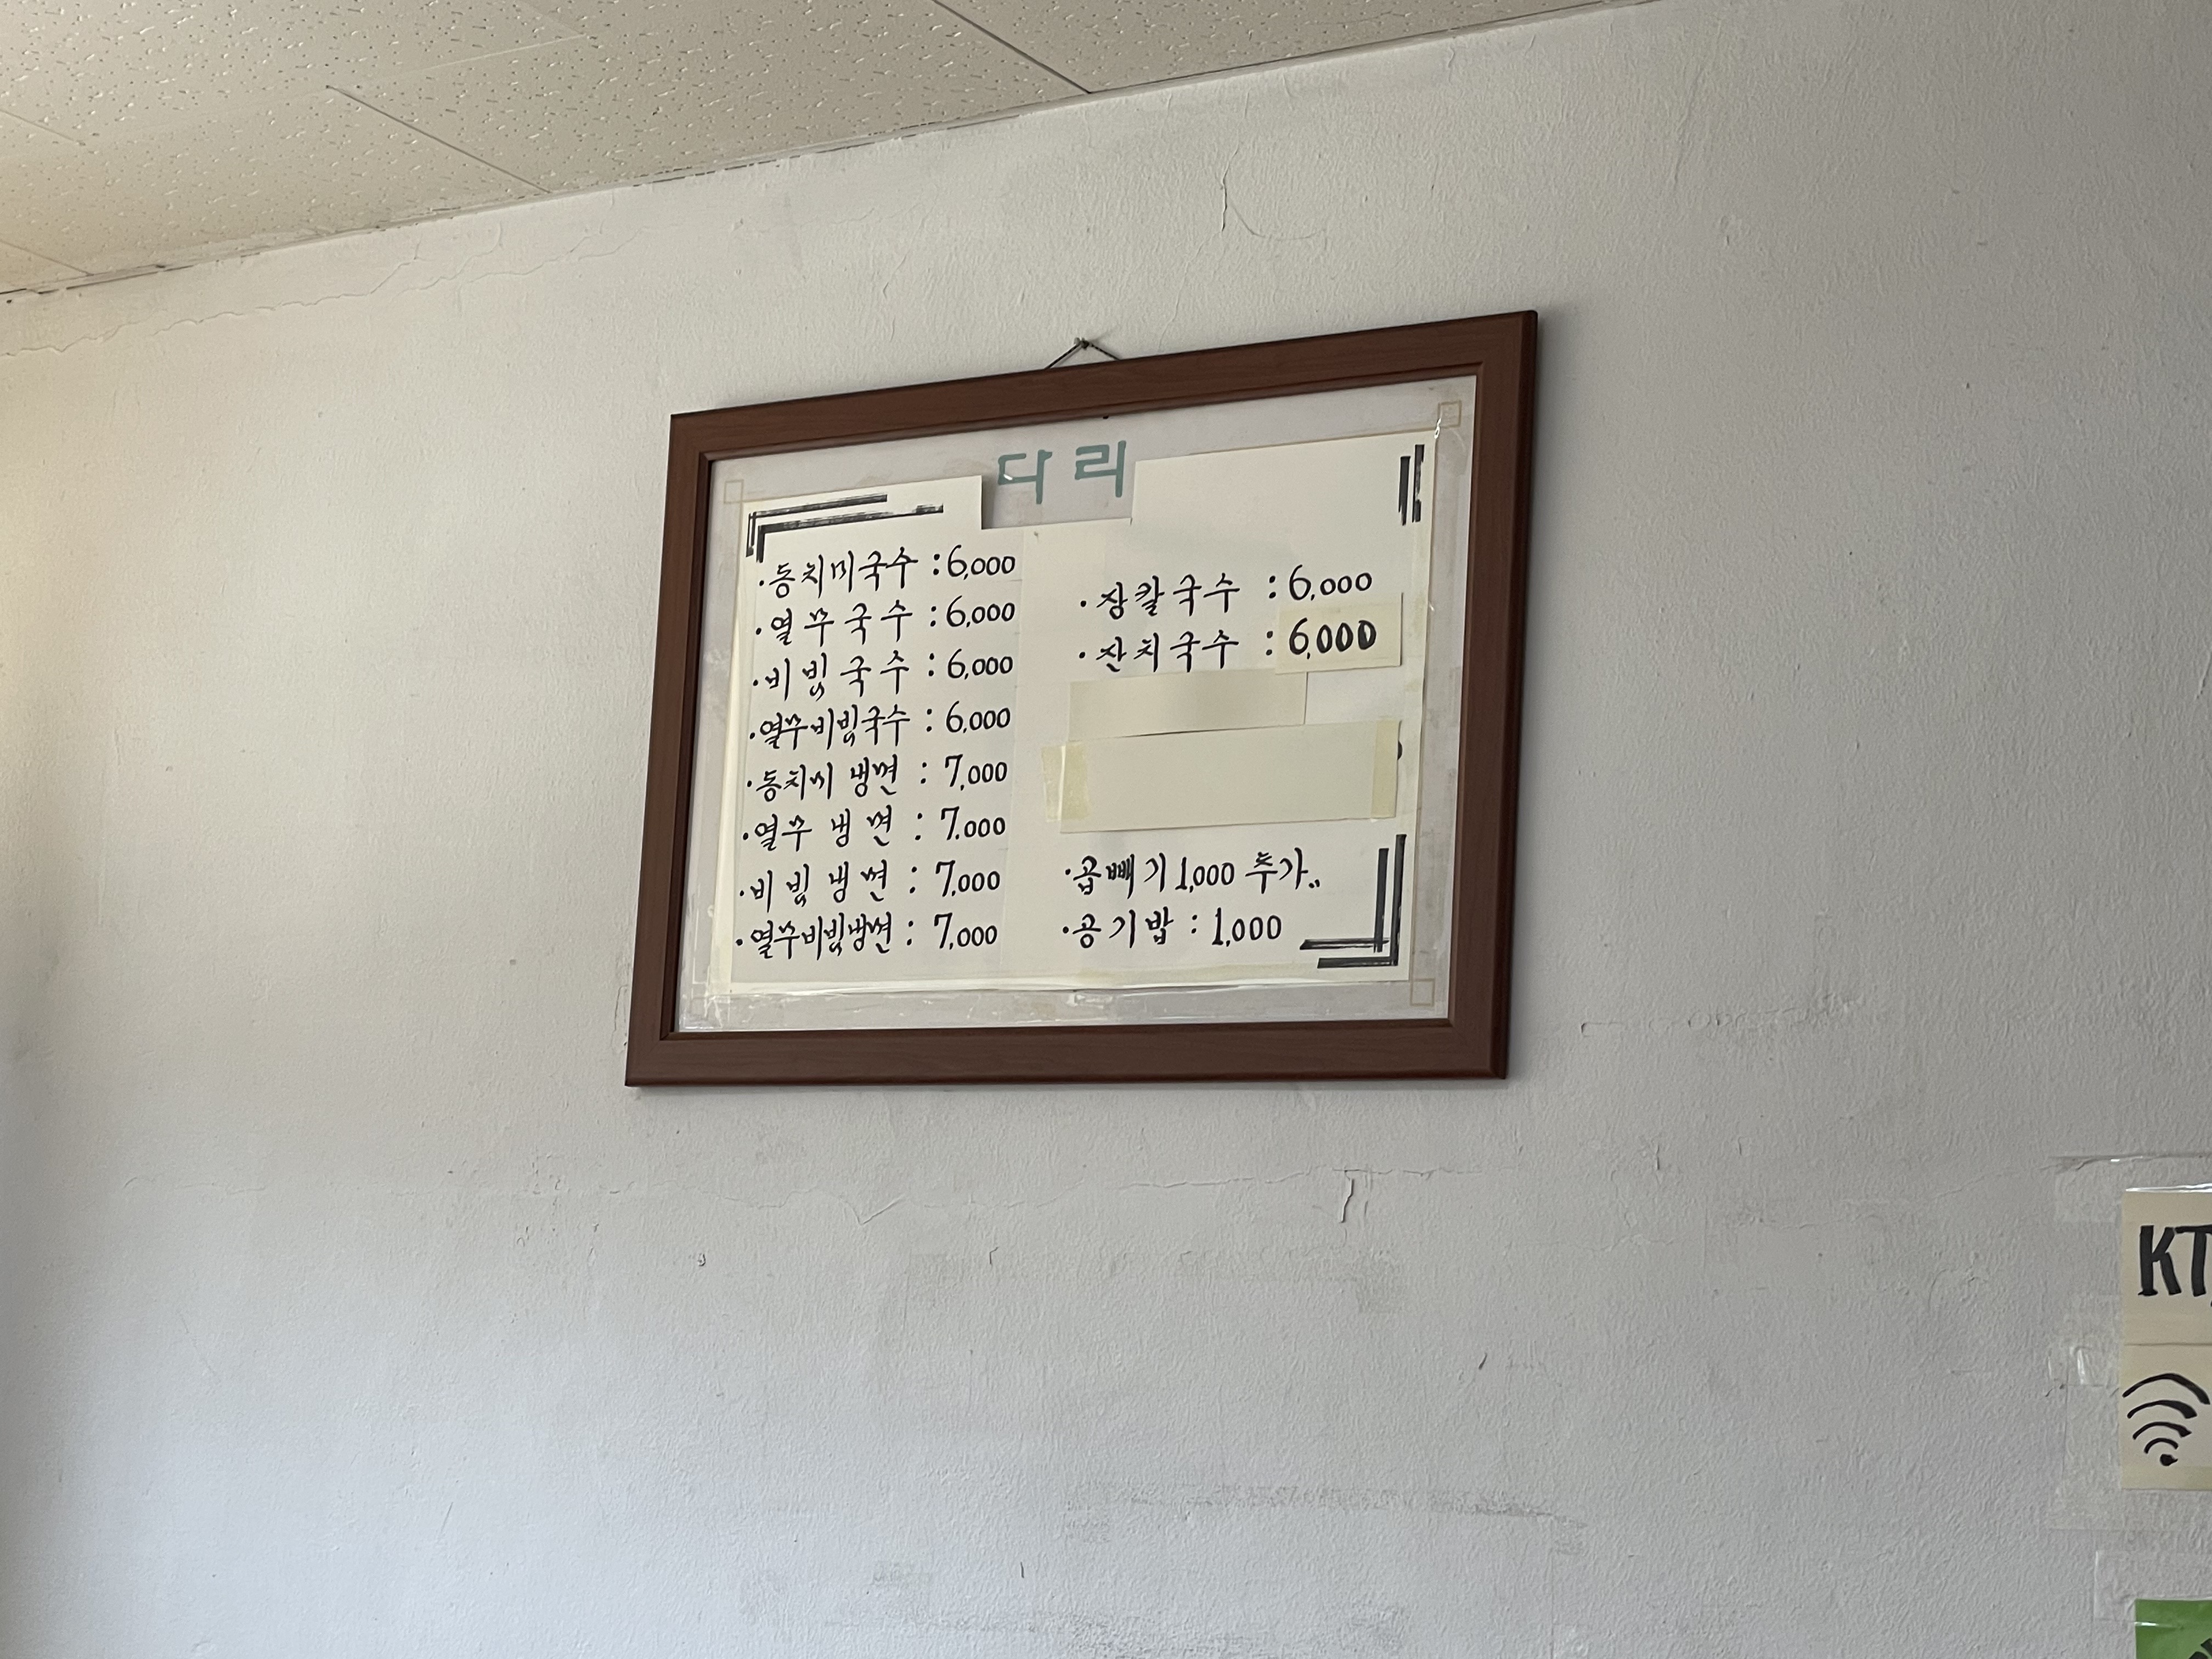 다리
·동치미국수 : 6,000
·열무국수 : 6,000
·비빔국수 : 6,000
·열무비빔국수 : 6,000
·동치미 냉면 : 7,000
·열무 냉면 : 7.000
·비빔 냉면 : 7,000
·열무비빔냉면 : 7,000
·장칼국수 : 6,000
·잔치국수 : 6,000
·곱빼기 1,000 추가..
·공기밥 : 1,000
KT